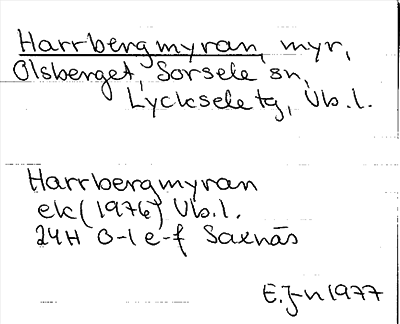 Harrbergmyran, myr,
Olsberget, Sorsele sn,
Lycksele tg, Vb.l.
Harrbergmyran
ek (1976) Vb.l.
24H 0-1 e-f Saxnäs
E.J-n 1977